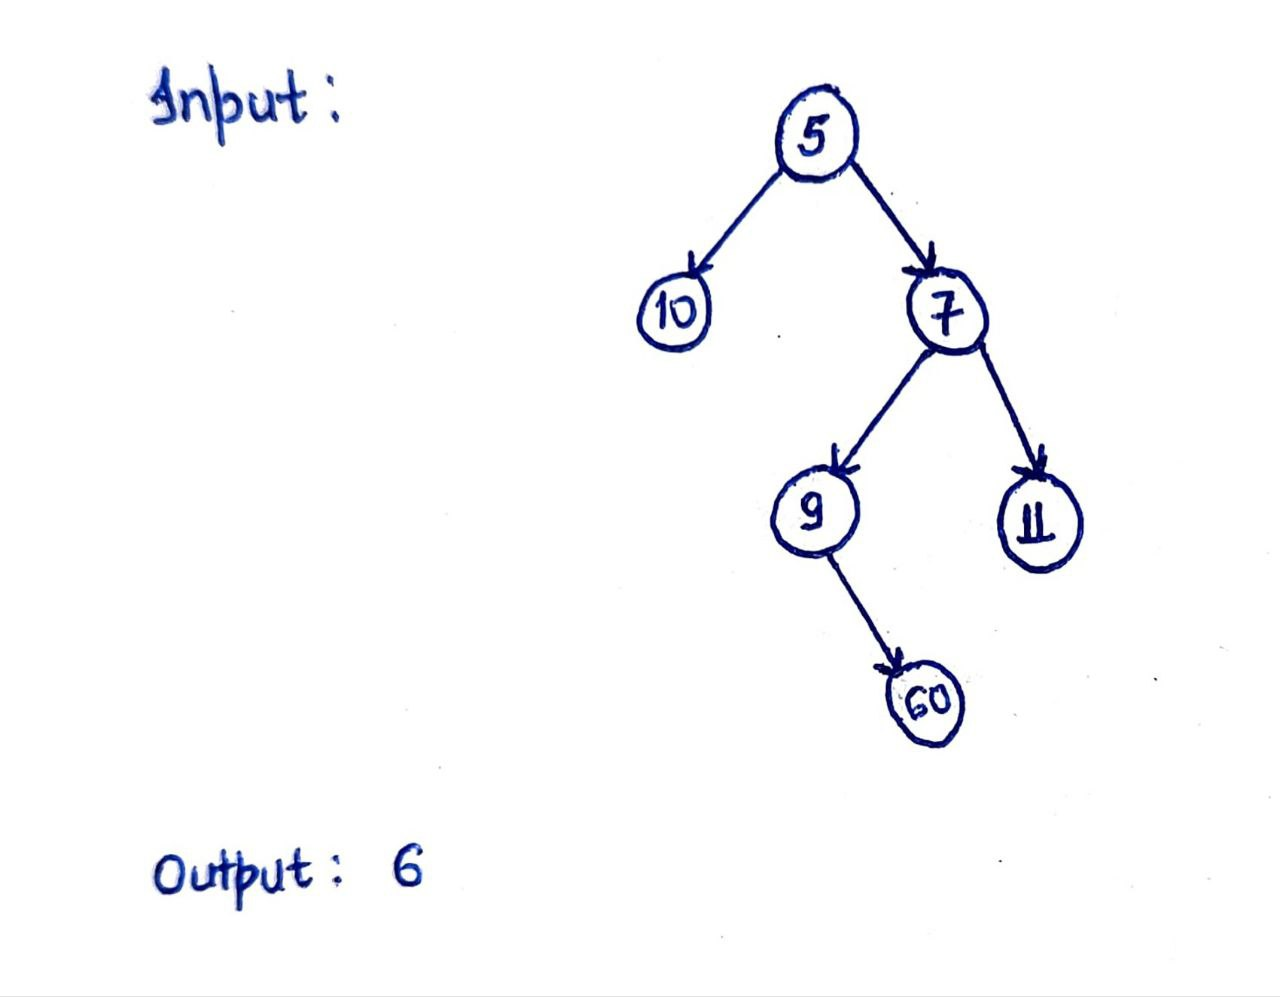 Input:
5
10
7
9
11
60
Output: 6